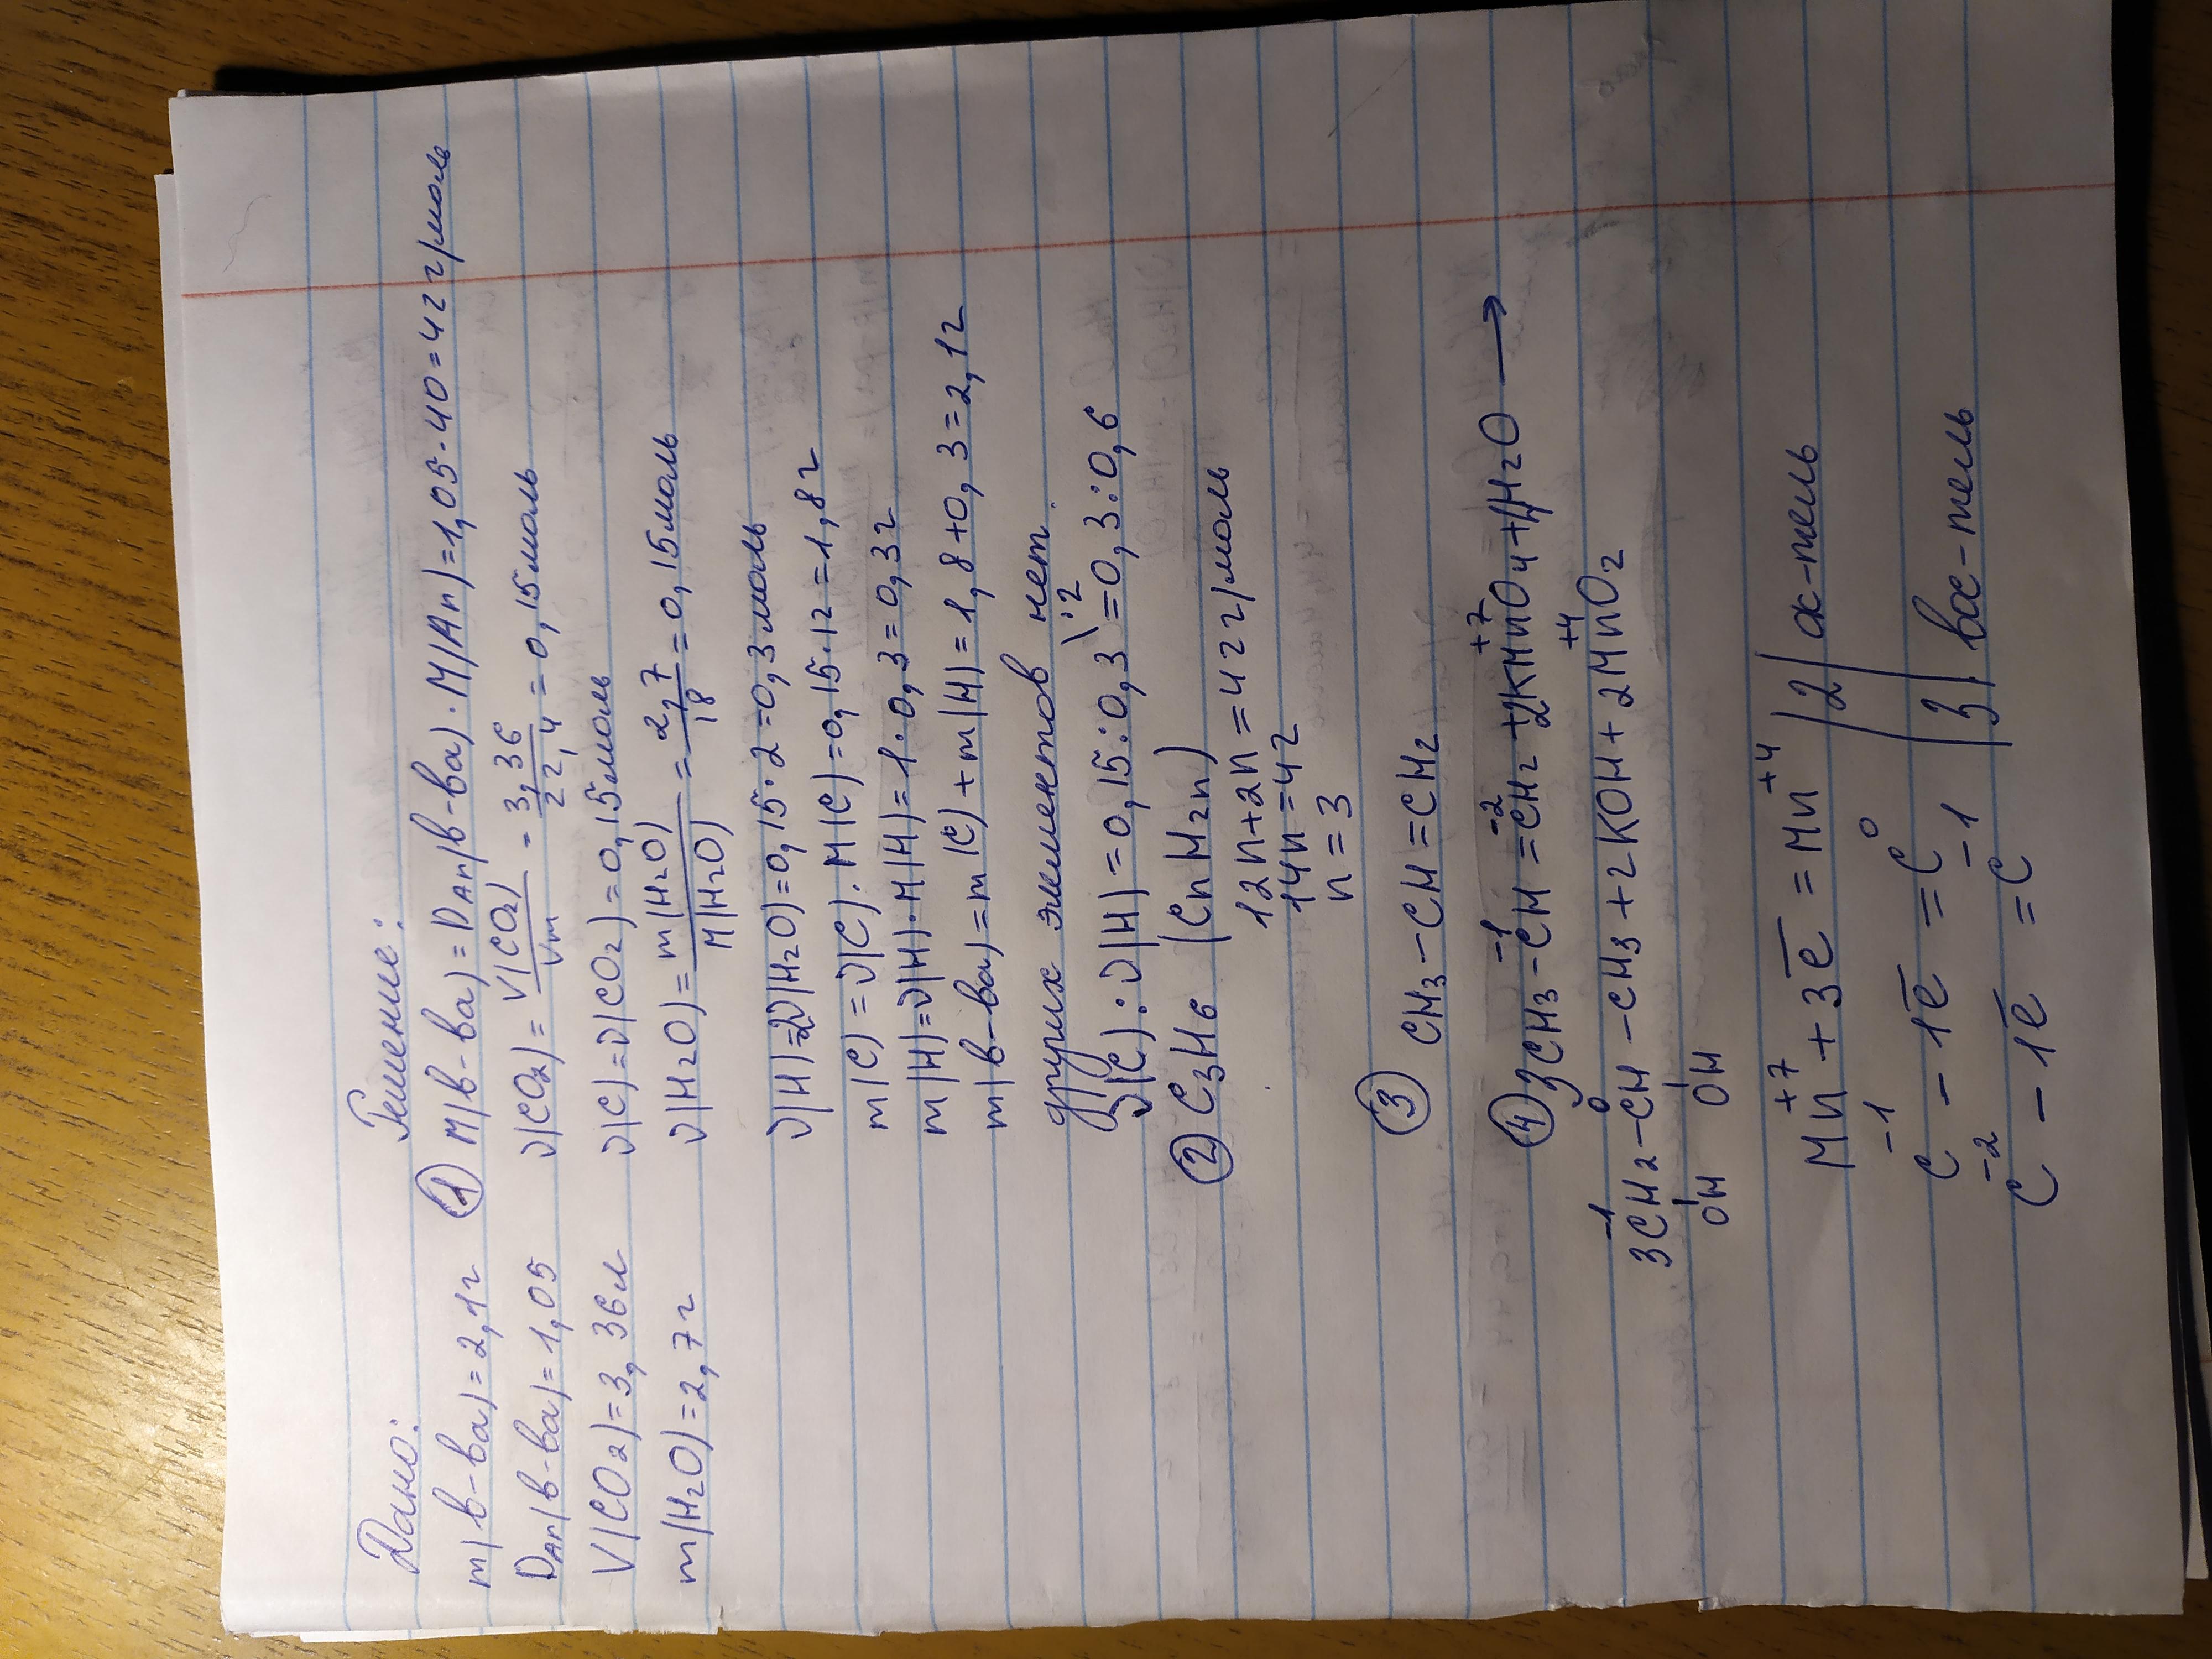 Дано:
m(в-ва)=2,1г
DAr(в-ва)=1,05
V(CO2)=3,36л
m(H2O)=2,7г
Решение:
① M(в-ва)=DAr(в-ва)·M(Ar)=1,05·40=42г/моль
ν(CO2)=V(CO2)/Vm=3,36/22,4=0,15моль
ν(C)=ν(CO2)=0,15моль
ν(H2O)=m(H2O)/M(H2O)=2,7/18=0,15моль
ν(H)=2ν(H2O)=0,15·2=0,3моль
m(C)=ν(C)·M(C)=0,15·12=1,8г
m(H)=ν(H)·M(H)=1·0,3=0,3г
m(в-ва)=m(C)+m(H)=1,8+0,3=2,1г
других элементов нет
ν(C):ν(H)=0,15:0,3\·2=0,3:0,6
② C3H6 (CnH2n)
12n+2n=42г/моль
14n=42
n=3
③ CH3-CH=CH2
④ 3CH3-C⁻¹H=C⁻²H2+2KMn⁺⁷O4+4H2O→
3C⁻¹H2-C⁰H-CH3+2KOH+2Mn⁺⁴O2
OH OH
Mn⁺⁷+3e=Mn⁺⁴ |2| ок-тель
C⁻¹-1e=C⁰ |3| вос-тель
C⁻²-1e=C⁻¹